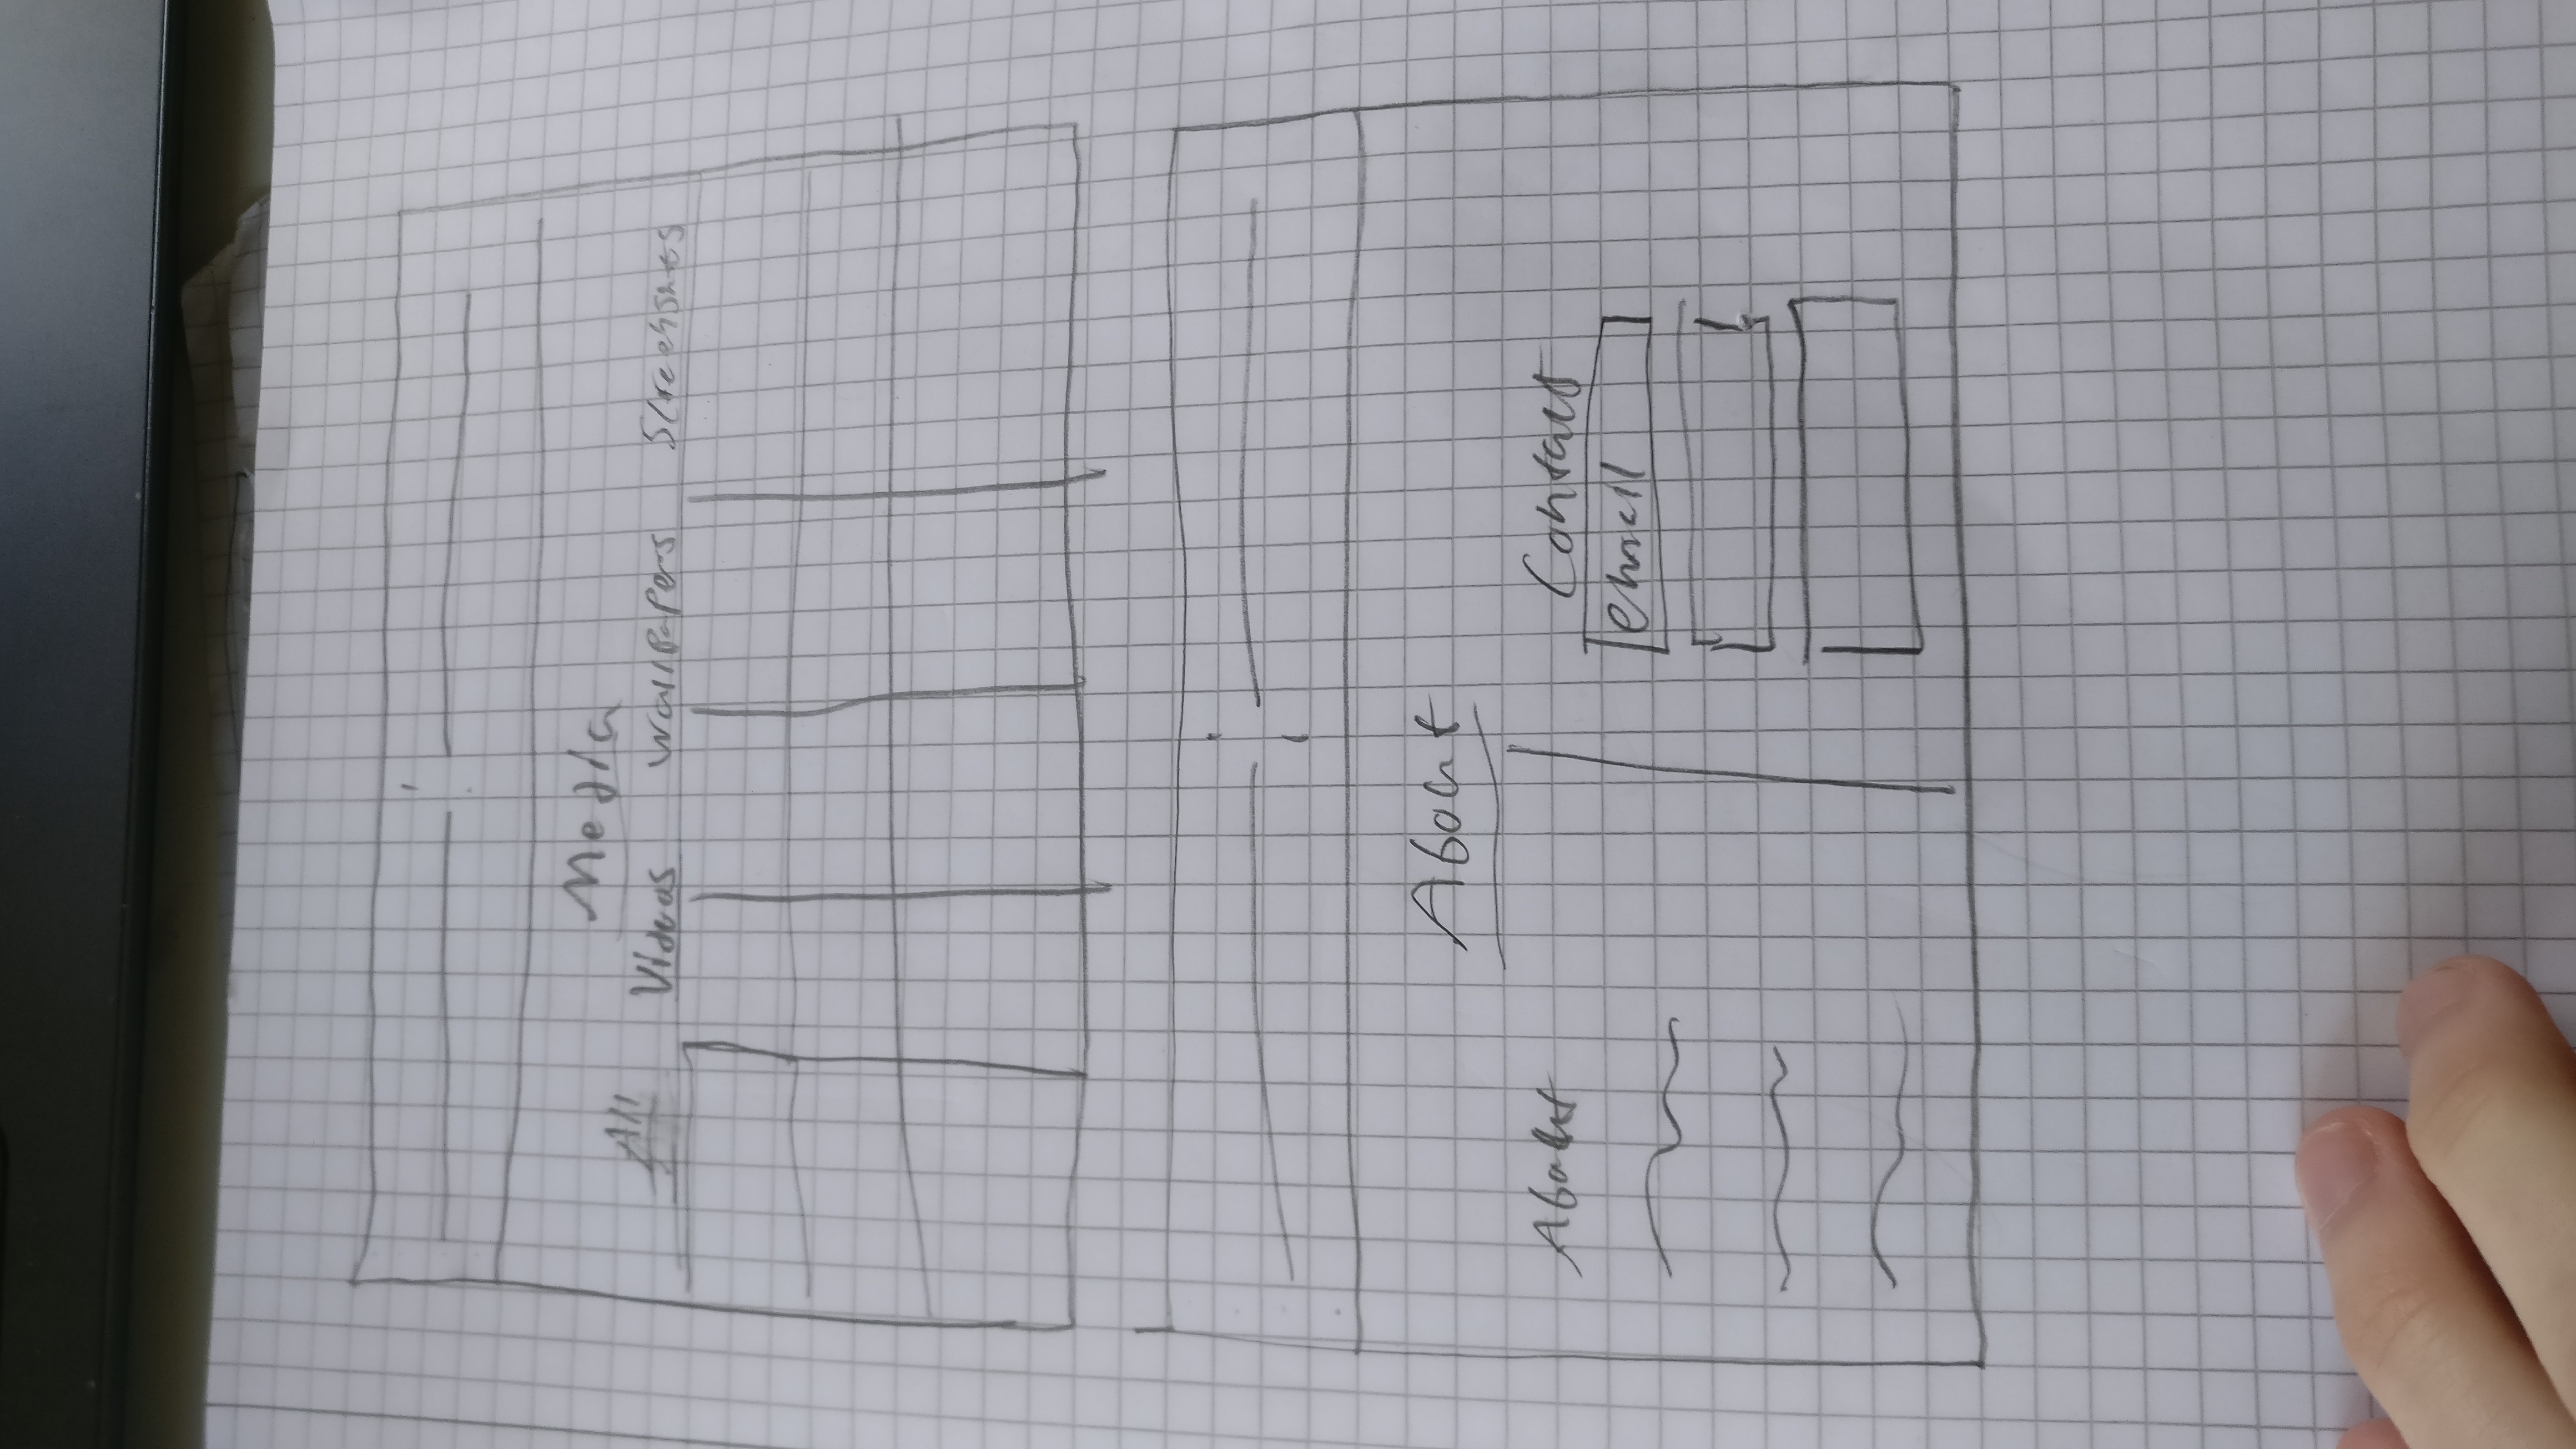 Media
All Videos Wallpapers Screenshots
About
About Contact
email